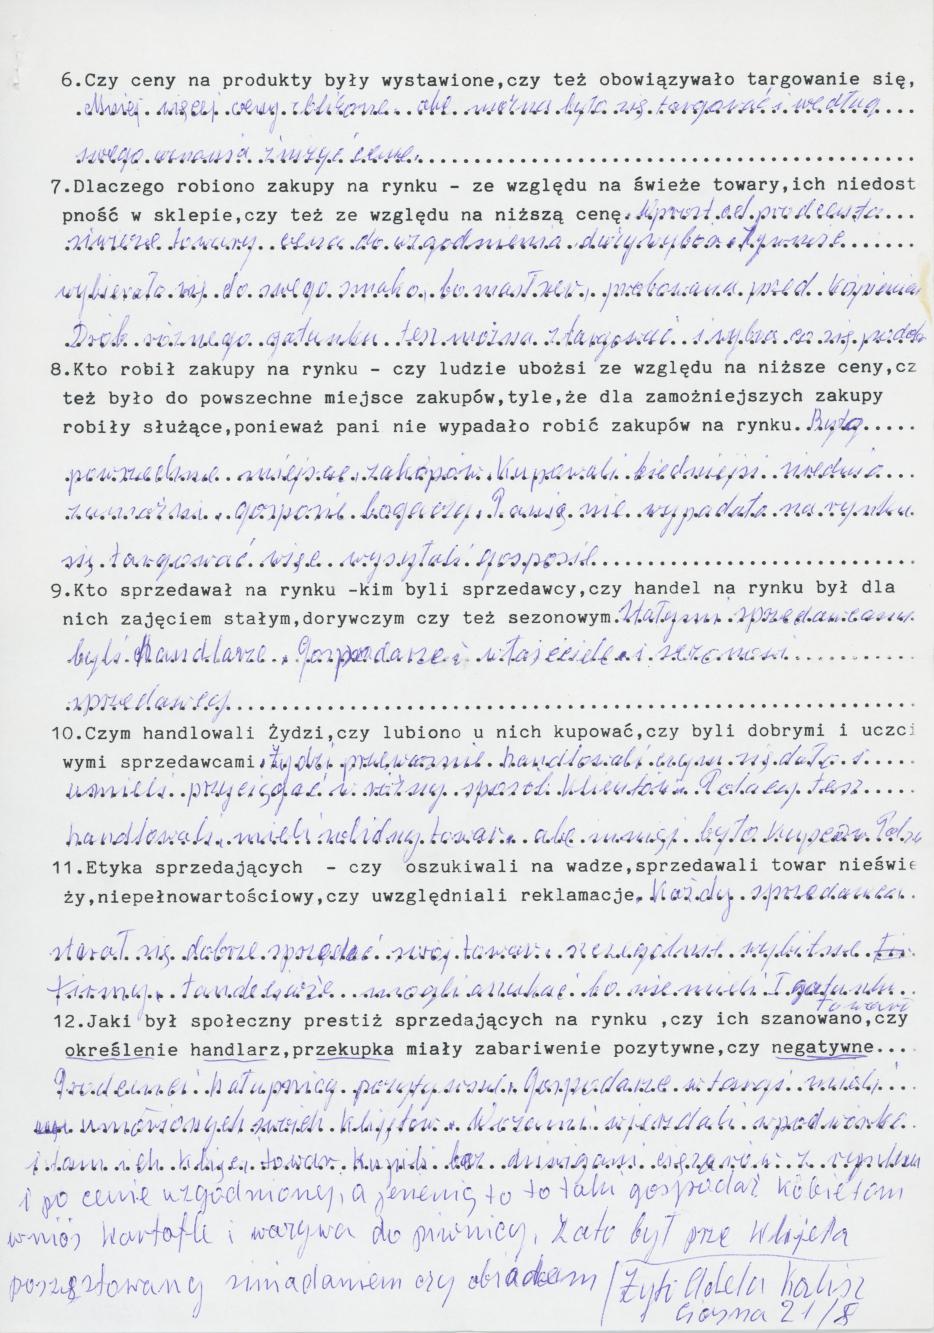 6.Czy ceny na produkty były wystawione,czy też obowiązywało targowanie się,
Mniej więcej ceny zbliżone ale można było się targować i według
swego uznania zniżyć cenę.
7.Dlaczego robiono zakupy na rynku - ze względu na świeże towary,ich niedost
pność w sklepie,czy też ze względu na niższą cenę. Wprost od producenta
świeże towary cena do uzgodnienia duży wybór
wybierało się do swego smaku, bo masł próbowana przed kupieniem
Drób różnego gatunku tesz można stargować i wybra co się podob
8.Kto robił zakupy na rynku - czy ludzie ubożsi ze względu na niższe ceny,cz
też było do powszechne miejsce zakupów,tyle,że dla zamożniejszych zakupy
robiły służące,ponieważ pani nie wypadało robić zakupów na rynku. Było
powszechne miejsce zakópów. Kupowali biedniejsi średnio
zamożni, gosposie bogaczy. Panią nie wypadało na rynku
się targować więc wysyłali gosposie
9.Kto sprzedawał na rynku -kim byli sprzedawcy,czy handel na rynku był dla
nich zajęciem stałym,dorywczym czy też sezonowym. Stałymi sprzedawcami
byli handlarze, Gospodarze i właściciele i sezonowi
sprzedawcy
10.Czym handlowali Żydzi,czy lubiono u nich kupować,czy byli dobrymi i uczci
wymi sprzedawcami. Żydzi przeważnie handlowali czym się dało i
umieli przyciągać w różny sposób klientów. Polacy tesz
handlowali, mieli solidny towar, ale mniej było kupców Pols
11.Etyka sprzedających - czy oszukiwali na wadze,sprzedawali towar nieświe
ży,niepełnowartościowy,czy uwzględniali reklamacje. Każdy sprzedawca
starał się dobrze sprzedać swój towar szczególnie wybitne
firmy, tandeciarze mogli oszukać bo nie mieli I gatunku
towaru
12.Jaki był społeczny prestiż sprzedających na rynku ,czy ich szanowano,czy
określenie handlarz,przekupka miały zabariwenie pozytywne,czy negatywne....
chałupnicy pozytywnie. Gospodarze w targi mieli
umówionych swoich klijętów. Wozami wjeżdali w podwórka
i tam ich klijęci towar kupili bez dzwigani ciężarów z rynku
i po cenie uzgodnionej, a jesienią to to taki gospodaż kobietom
wniós kartofle i warzywa do piwnicy, zato był prze klijęta
poszęstowany śniadaniem czy obiadem / Zyfi Adela Kalisz
21/8